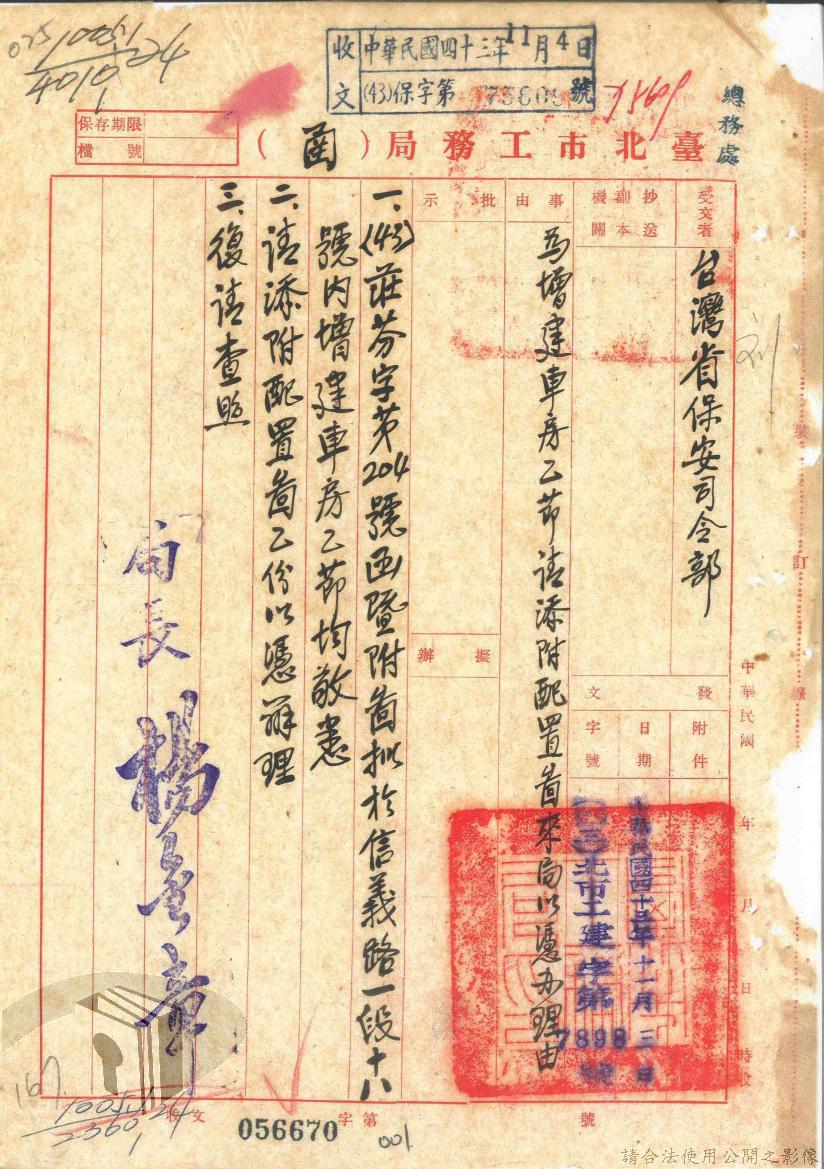 收文
中華民國四十三年11月4日
(43)保字第75609號
75609
總務處
保存期限
檔號
臺北市工務局(函)
受文者
台灣省保安司令部
抄送副本機關
事由
為增建車房乙節請添附配置圖來局以憑办理由
批示
擬辦
發文
附件
日期
字號
中華民國四十三年十一月三日
北市工建字第7898號
一、(43)莊芬字第204號函暨附圖拟於信義路一段十八
號內增建車房乙節均敬悉
二、請添附配置圖乙份以憑辦理
三、復請查照
局長
裝訂線
中華民國 年 月 日 時收
收文 字第 號
056670
001
167
請合法使用公開之影像